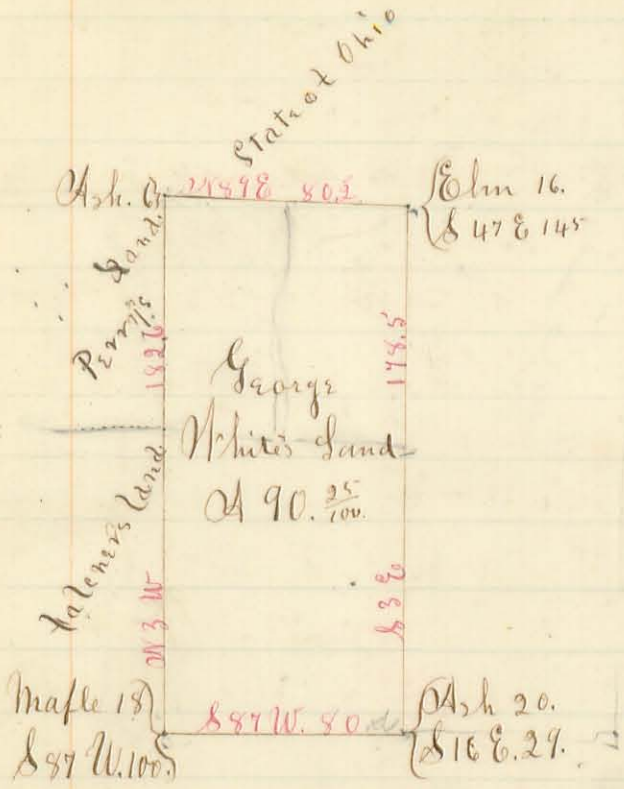 State of Ohio
Ash. 6
N89E 80.2
Elm 16.
S 47 E 145
Perry's Land.
182.6
178.5
George
White's Land
A 90. 25/100.
Land
N3 W
S3 E
Maple 18
S 87 W. 100
S87 W. 80
Ash 20.
S16 E. 29.